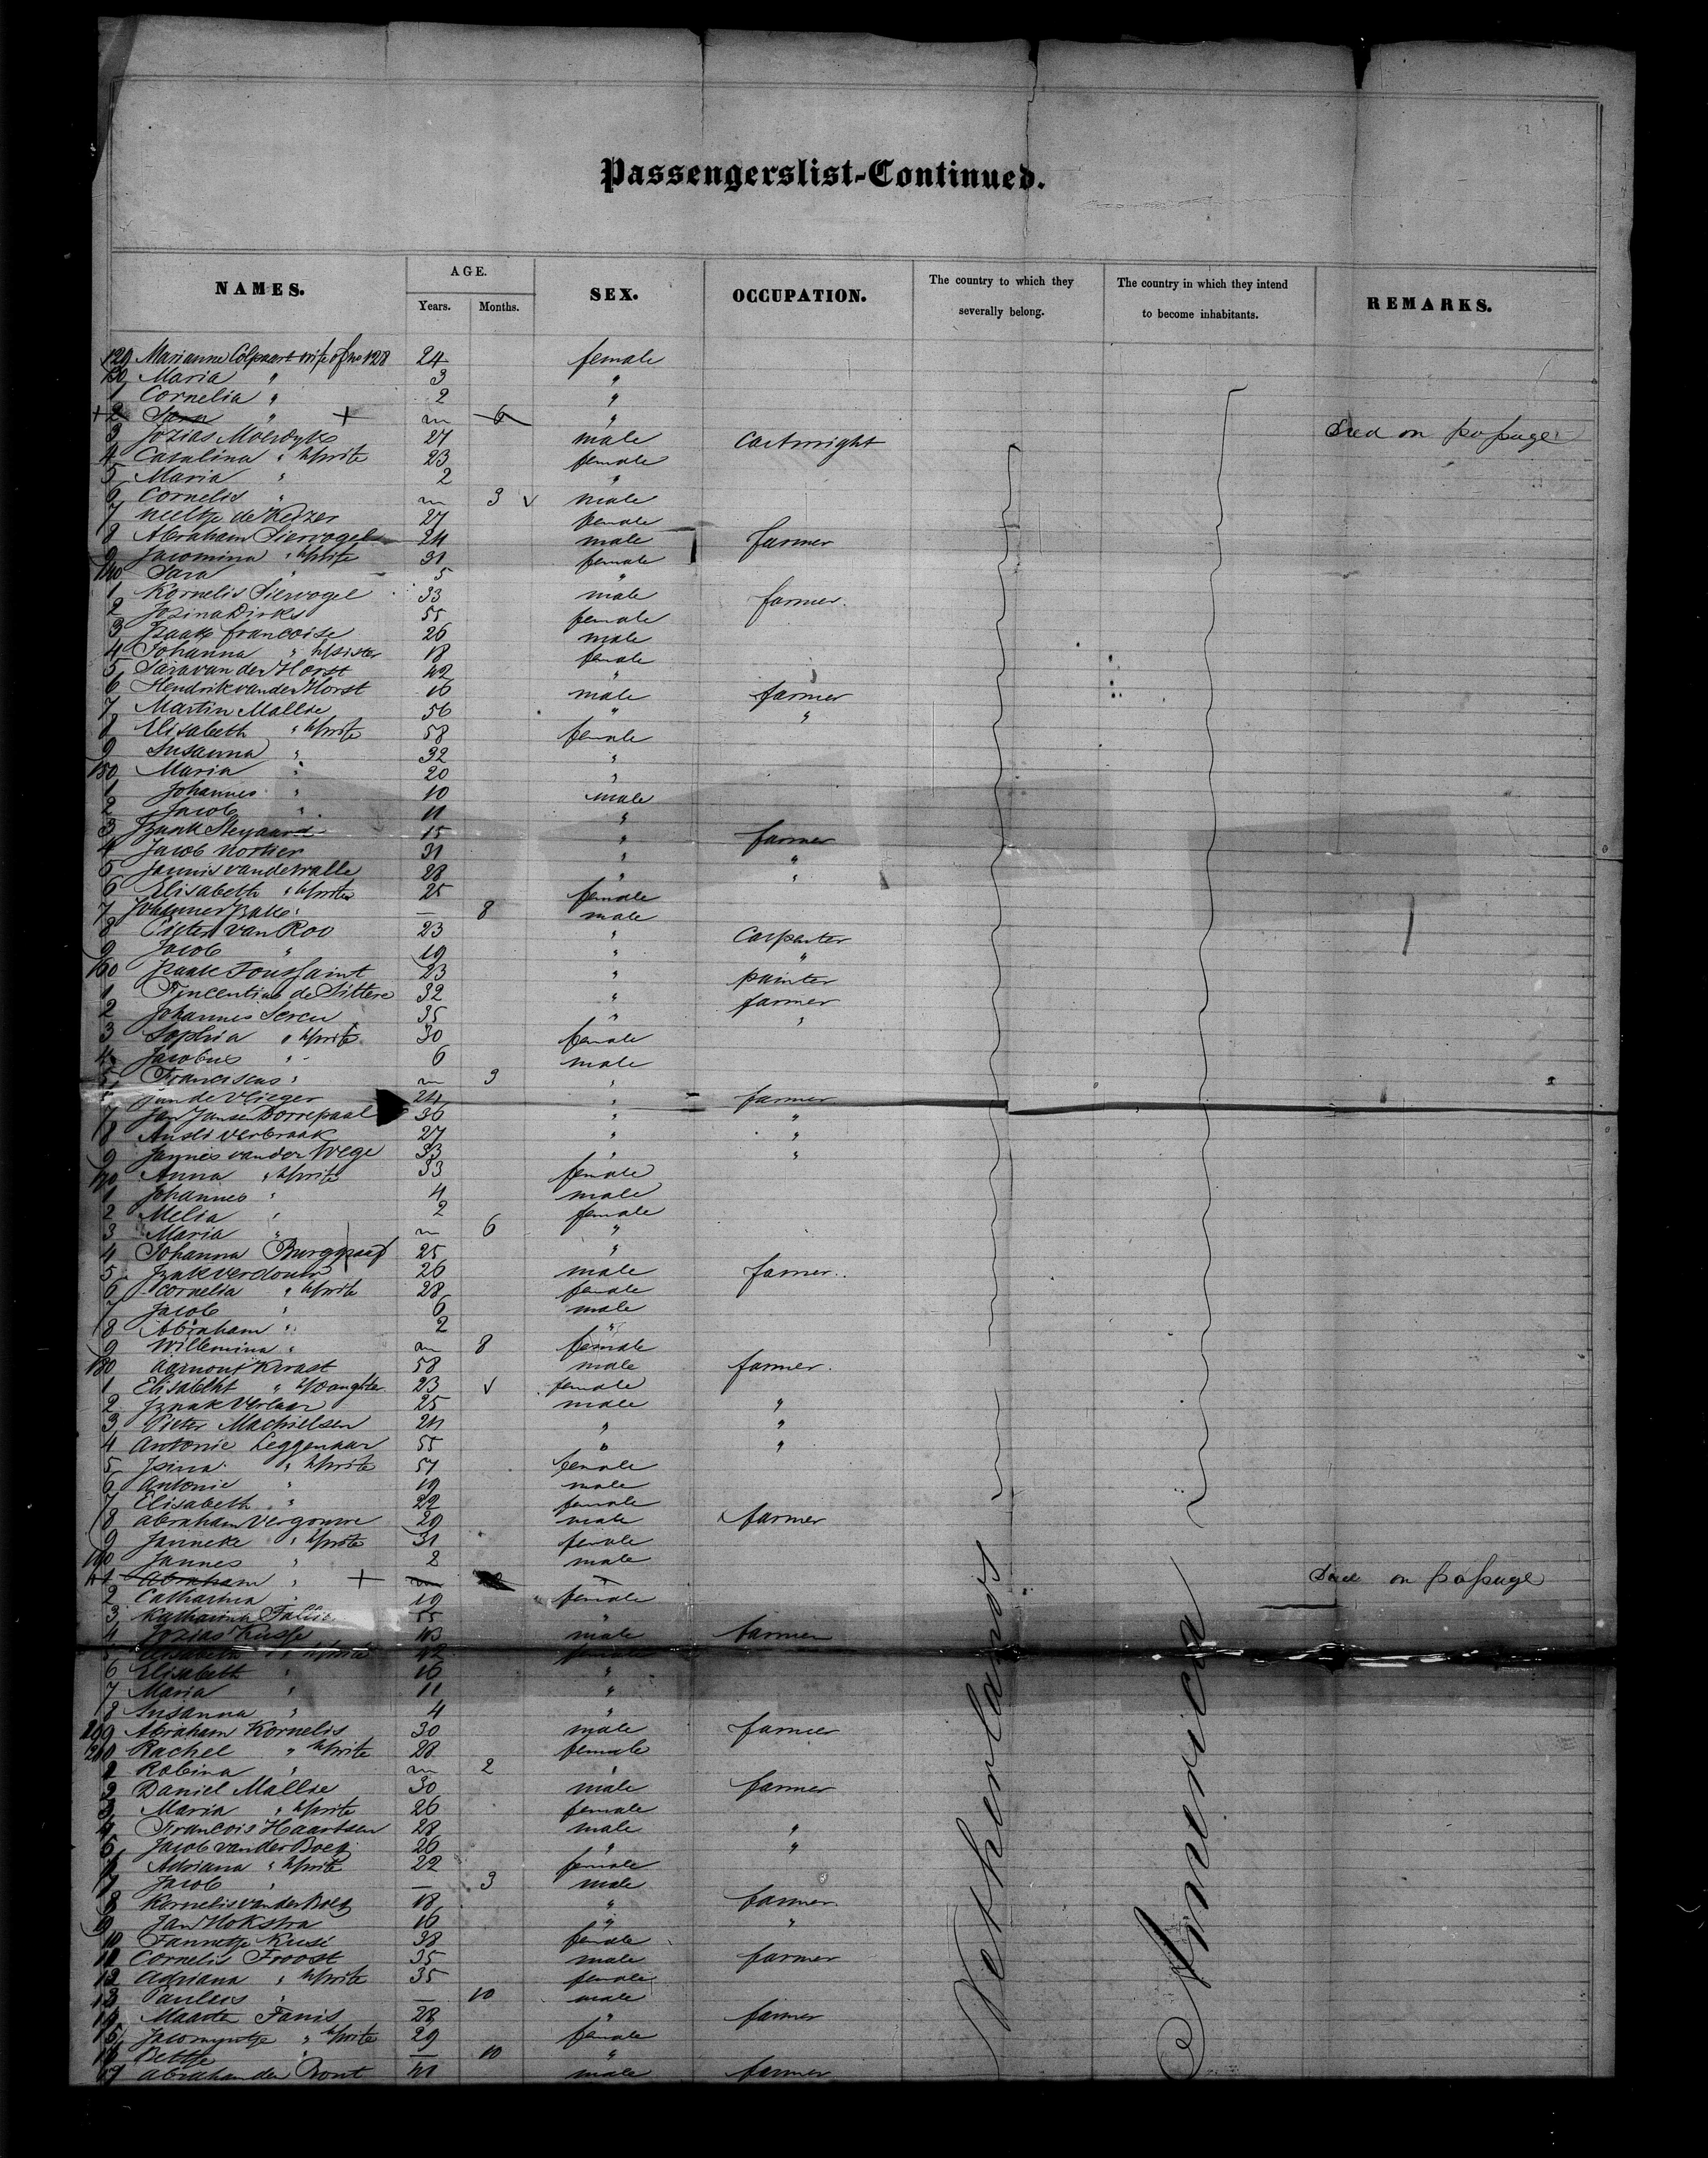 Passengerslist-Continued.
NAMES. AGE. Years. Months. SEX. OCCUPATION. The country to which they severally belong. The country in which they intend to become inhabitants. REMARKS.
129 Marianne Colpaert wife of no 128 24 female
130 Maria " 3 "
1 Cornelia " 2 "
+2 Sara " + m 6 "
3 Jozias Moerdyke 27 male Cartwright died on papage
4 Catalina " h/wife 23 female
5 Maria " 2 "
6 Cornelis " m 3 male
7 Neeltje de Keizer 27 female
8 Abraham Siervogel 24 male farmer
9 Jacomina " h/wife 31 female
140 Sara " 5 "
1 Kornelis Siervogel 33 male farmer.
2 Jozina Dirks 55 female
3 Izaak francoise 26 male
4 Johanna " h/sister 18 female
5 Sara van der Horst 42 "
6 Hendrik van der Horst 16 male farmer
7 Martin Mallie 56 " "
8 Elisabeth " h/wife 58 female
9 Susanna " 32 "
150 Maria " 20 "
1 Johannes " 10 male
2 Jacob " 11 "
3 Izaak 15 " farmer
4 Jacob Mortier 31 " "
5 Jannis van de Walle 28 " "
6 Elisabeth " h/wife 25 female
7 Johannes — 8 male
8 Pieter van Roo 23 " Carpenter
9 Jacob " 19 " "
160 Izaak Toussaint 23 " painter
1 de Sittere 32 " farmer
2 Johannes Sereu 35 " "
3 Sophia " h/wife 30 female
4 Jacobus " 6 male
5 Franciscus " m 3 "
Jan de Vlieger 24 " farmer
7 Jan Jansen Dorrepaal 36 " "
8 Verbraak 27 " "
9 Jannis van der Wege 33 " "
170 Anna " h/wife 33 female
1 Johannes " 4 male
2 Melia " 2 female
3 Maria " m 6 "
4 Johanna Burggraaf 25 "
5 Izak Verdouw 26 male farmer.
6 Cornelia " h/wife 28 female
7 Jacob " 6 male
8 Abraham " 2 "
9 Willemina " m 8 female
180 Kwast 58 male farmer.
1 Elisabeth " h/Daughter 23 female
2 Izaak Verlaar 25 male "
3 Pieter Machielsen 24 " "
4 Antonie Leggenaar 55 " "
5 Jsina " h/wife 57 female
6 Antonie " 19 male
7 Elisabeth " 22 female
8 Abraham Vergouwe 29 male farmer
9 Janneke " h/wife 31 female
190 Jannes " 2 male
+1 Abraham " + m " died on papage
2 Catharina " 19 female
3 Katharina 55 "
4 Jozias Kusse 43 male farmer
5 Elisabeth " h/wife 42 female
6 Elisabeth " 16 "
7 Maria " 11 "
8 Susanna " 4 "
209 Abraham Kornelis 30 male farmer
210 Rachel " h/wife 28 female
1 Robina " m 2 "
2 Daniel Mallie 30 male farmer
3 Maria " h/wife 26 female
4 Francois Haartsen 28 male "
5 Jacob van der Boeg 26 " "
6 Adriana " h/wife 22 female
7 Jacob " — 3 male
8 Kornelis van der Boeg 18 " farmer.
9 Jan Hokstra 16 " "
10 Tannetje Kusé 38 female
11 Cornelis Froost 35 male farmer
12 Adriana " h/wife 35 female
13 Paulus " — 10 male
14 Maarten Fanis 28 " farmer
15 Jacomyntje " h/wife 29 female
16 Bettje " — 10 "
17 Abraham de Pront 41 male farmer
Netherlands
America